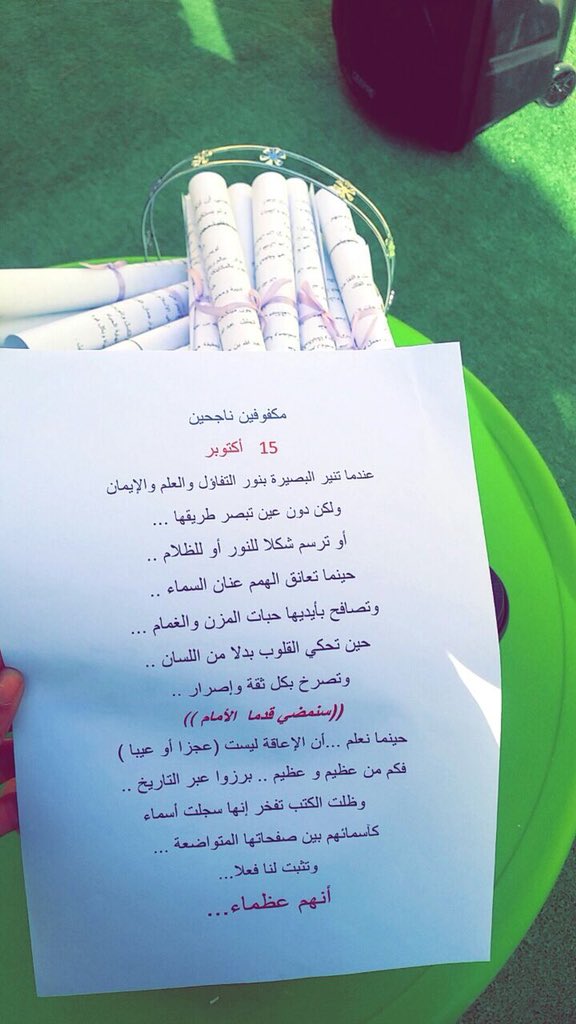 مكفوفين ناجحين
15 أكتوبر
عندما تنير البصيرة بنور التفاؤل والعلم والإيمان
ولكن دون عين تبصر طريقها ...
أو ترسم شكلا للنور أو للظلام ..
حينما تعانق الهمم عنان السماء ..
وتصافح بأيديها حبات المزن والغمام ...
حين تحكي القلوب بدلا من اللسان ..
وتصرخ بكل ثقة وإصرار ..
((سنمضي قدما الأمام ))
حينما نعلم ...أن الإعاقة ليست (عجزا أو عيبا )
فكم من عظيم و عظيم .. برزوا عبر التاريخ ..
وظلت الكتب تفخر إنها سجلت أسماء
كأسمائهم بين صفحاتها المتواضعة ...
وتثبت لنا فعلا...
أنهم عظماء...